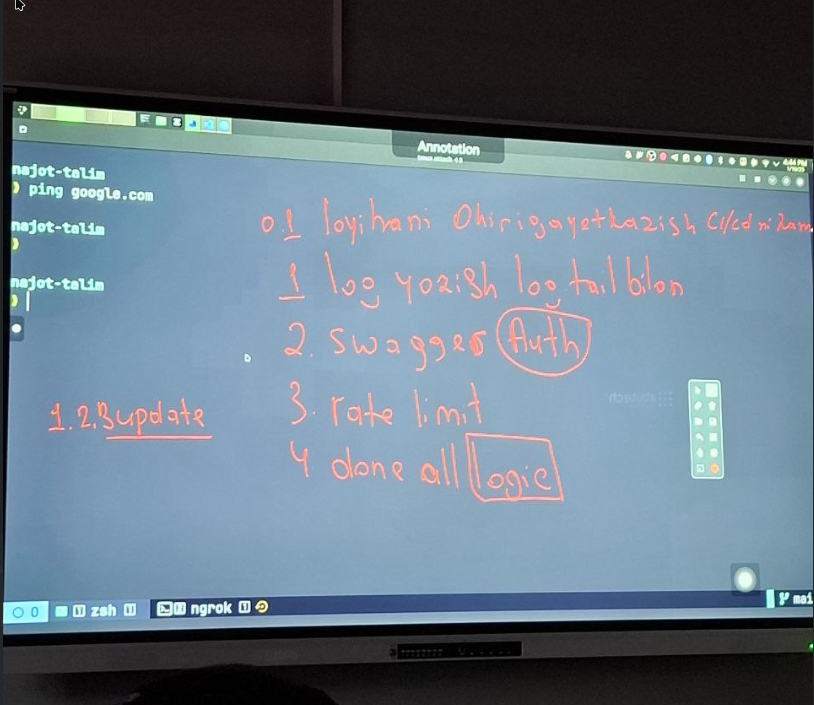 Annotation
4:44 PM
najot-talim
ping google.com
najot-talim
najot-talim
0.1 loyihani Ohirigayetkazish CI/cd ni ham
1 log yozish logtail bilan
2. Swagger Auth
3. rate limit
4 done all logic
1.2.3 update
0 zsh ngrok mai